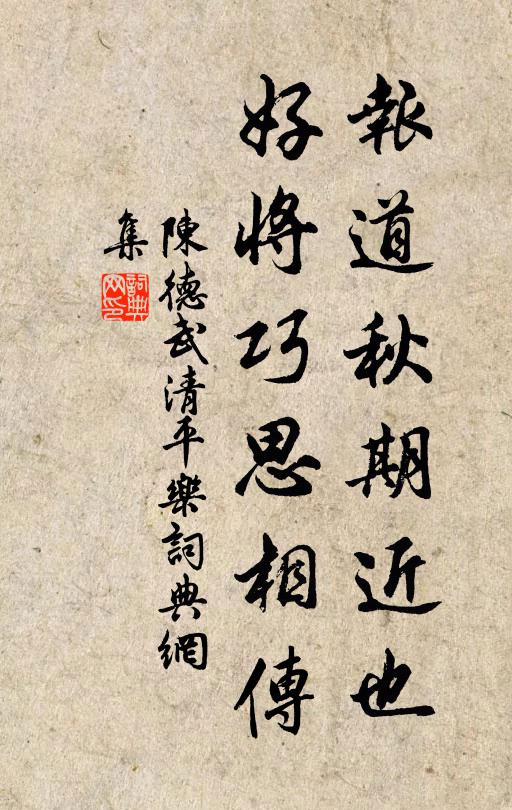 報道秋期近也
好將巧思相傳
陳德武清平樂詞典網
集
詞典网印